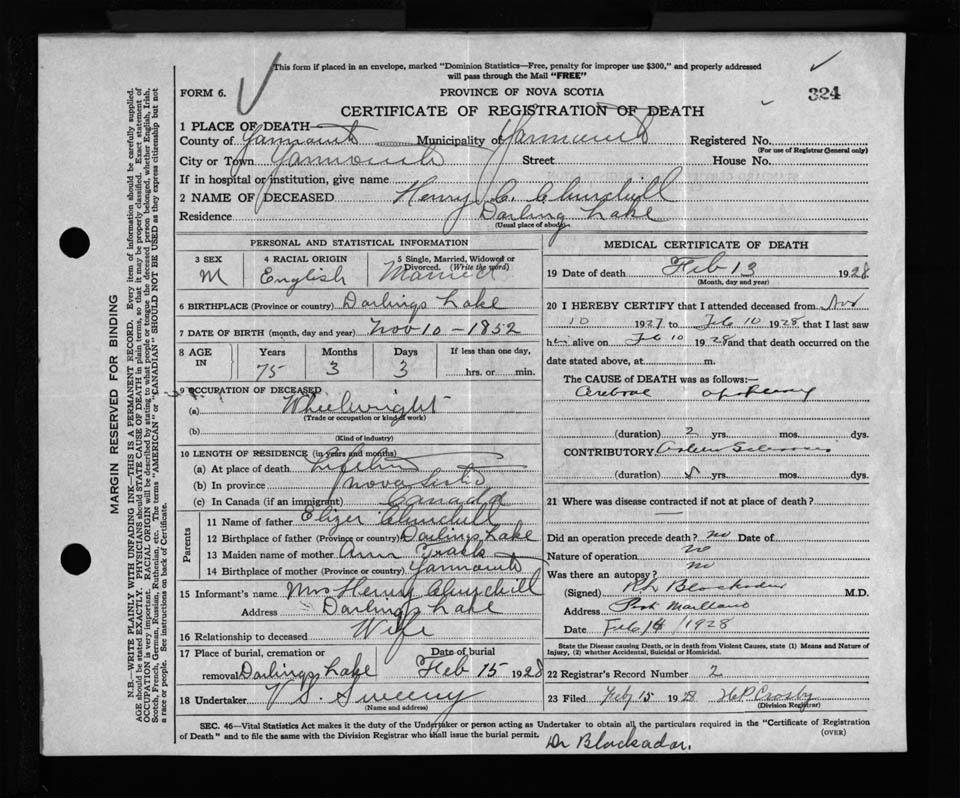 This form if placed in an envelope, marked "Dominion Statistics—Free, penalty for improper use $300," and properly addressed
will pass through the Mail "FREE"
FORM 6.
PROVINCE OF NOVA SCOTIA
324
CERTIFICATE OF REGISTRATION OF DEATH
1 PLACE OF DEATH
County of Yarmouth Municipality of Yarmouth Registered No.
(For use of Registrar General only)
City or Town Yarmouth Street House No.
If in hospital or institution, give name
2 NAME OF DECEASED Henry C. Churchill
Residence Darling Lake
(Usual place of abode)
PERSONAL AND STATISTICAL INFORMATION
3 SEX 4 RACIAL ORIGIN 5 Single, Married, Widowed or
Divorced. (Write the word)
M English Married
6 BIRTHPLACE (Province or country) Darlings Lake
7 DATE OF BIRTH (month, day and year) Nov 10 - 1852
8 AGE IN Years Months Days If less than one day,
75 3 3 hrs. or min.
9 OCCUPATION OF DECEASED
(a) Wheelwright
(Trade or occupation or kind of work)
(b)
(Kind of industry)
10 LENGTH OF RESIDENCE (in years and months)
(a) At place of death Lifetime
(b) In province Nova Scotia
(c) In Canada (if an immigrant) Canada
Parents
11 Name of father Churchill
12 Birthplace of father (Province or country) Darlings Lake
13 Maiden name of mother Ann
14 Birthplace of mother (Province or country) Yarmouth
15 Informant's name Mrs Henry Churchill
Address Darlings Lake
16 Relationship to deceased Wife
17 Place of burial, cremation or Date of burial
removal Darlings Lake Feb 15 1928
18 Undertaker V. S. Sweeny
(Name and address)
MEDICAL CERTIFICATE OF DEATH
19 Date of death Feb 13 1928
(Month, day and year)
20 I HEREBY CERTIFY that I attended deceased from Nov
10 1927 to Feb 10 1928 that I last saw
him alive on Feb 10 1928 and that death occurred on the
date stated above, at m.
The CAUSE OF DEATH was as follows:—
Cerebral apoplexy
(duration) 2 yrs. mos. dys.
CONTRIBUTORY Arterio Sclerosis
(duration) yrs. mos. dys.
21 Where was disease contracted if not at place of death?
Did an operation precede death? no Date of
Nature of operation no
Was there an autopsy? no
(Signed) Blackadar M.D.
Address Port Maitland
Date Feb 14 / 1928
State the Disease causing Death, or in death from Violent Causes, state (1) Means and Nature of
Injury, (2) whether Accidental, Suicidal or Homicidal.
22 Registrar's Record Number 2
23 Filed Feb 15 1928 H P Crosby
(Division Registrar)
SEC. 46—Vital Statistics Act makes it the duty of the Undertaker or person acting as Undertaker to obtain all the particulars required in the "Certificate of Registration
of Death" and to file the same with the Division Registrar who shall issue the burial permit.
(OVER)
Dr Blackadar.
MARGIN RESERVED FOR BINDING
N.B.—WRITE PLAINLY WITH UNFADING INK—THIS IS A PERMANENT RECORD. Every item of information should be carefully supplied.
AGE should be stated EXACTLY. PHYSICIANS should STATE CAUSE OF DEATH in plain terms, so that it may be properly classified. Exact statement of
OCCUPATION is very important. RACIAL ORIGIN will be described by stating to what people or tongue the deceased person belonged, whether English, Irish,
Scotch, French, German, Russian, Ruthenian, etc. The terms "AMERICAN" or "CANADIAN" SHOULD NOT BE USED as they express citizenship but not
a race or people. See instructions on back of Certificate.